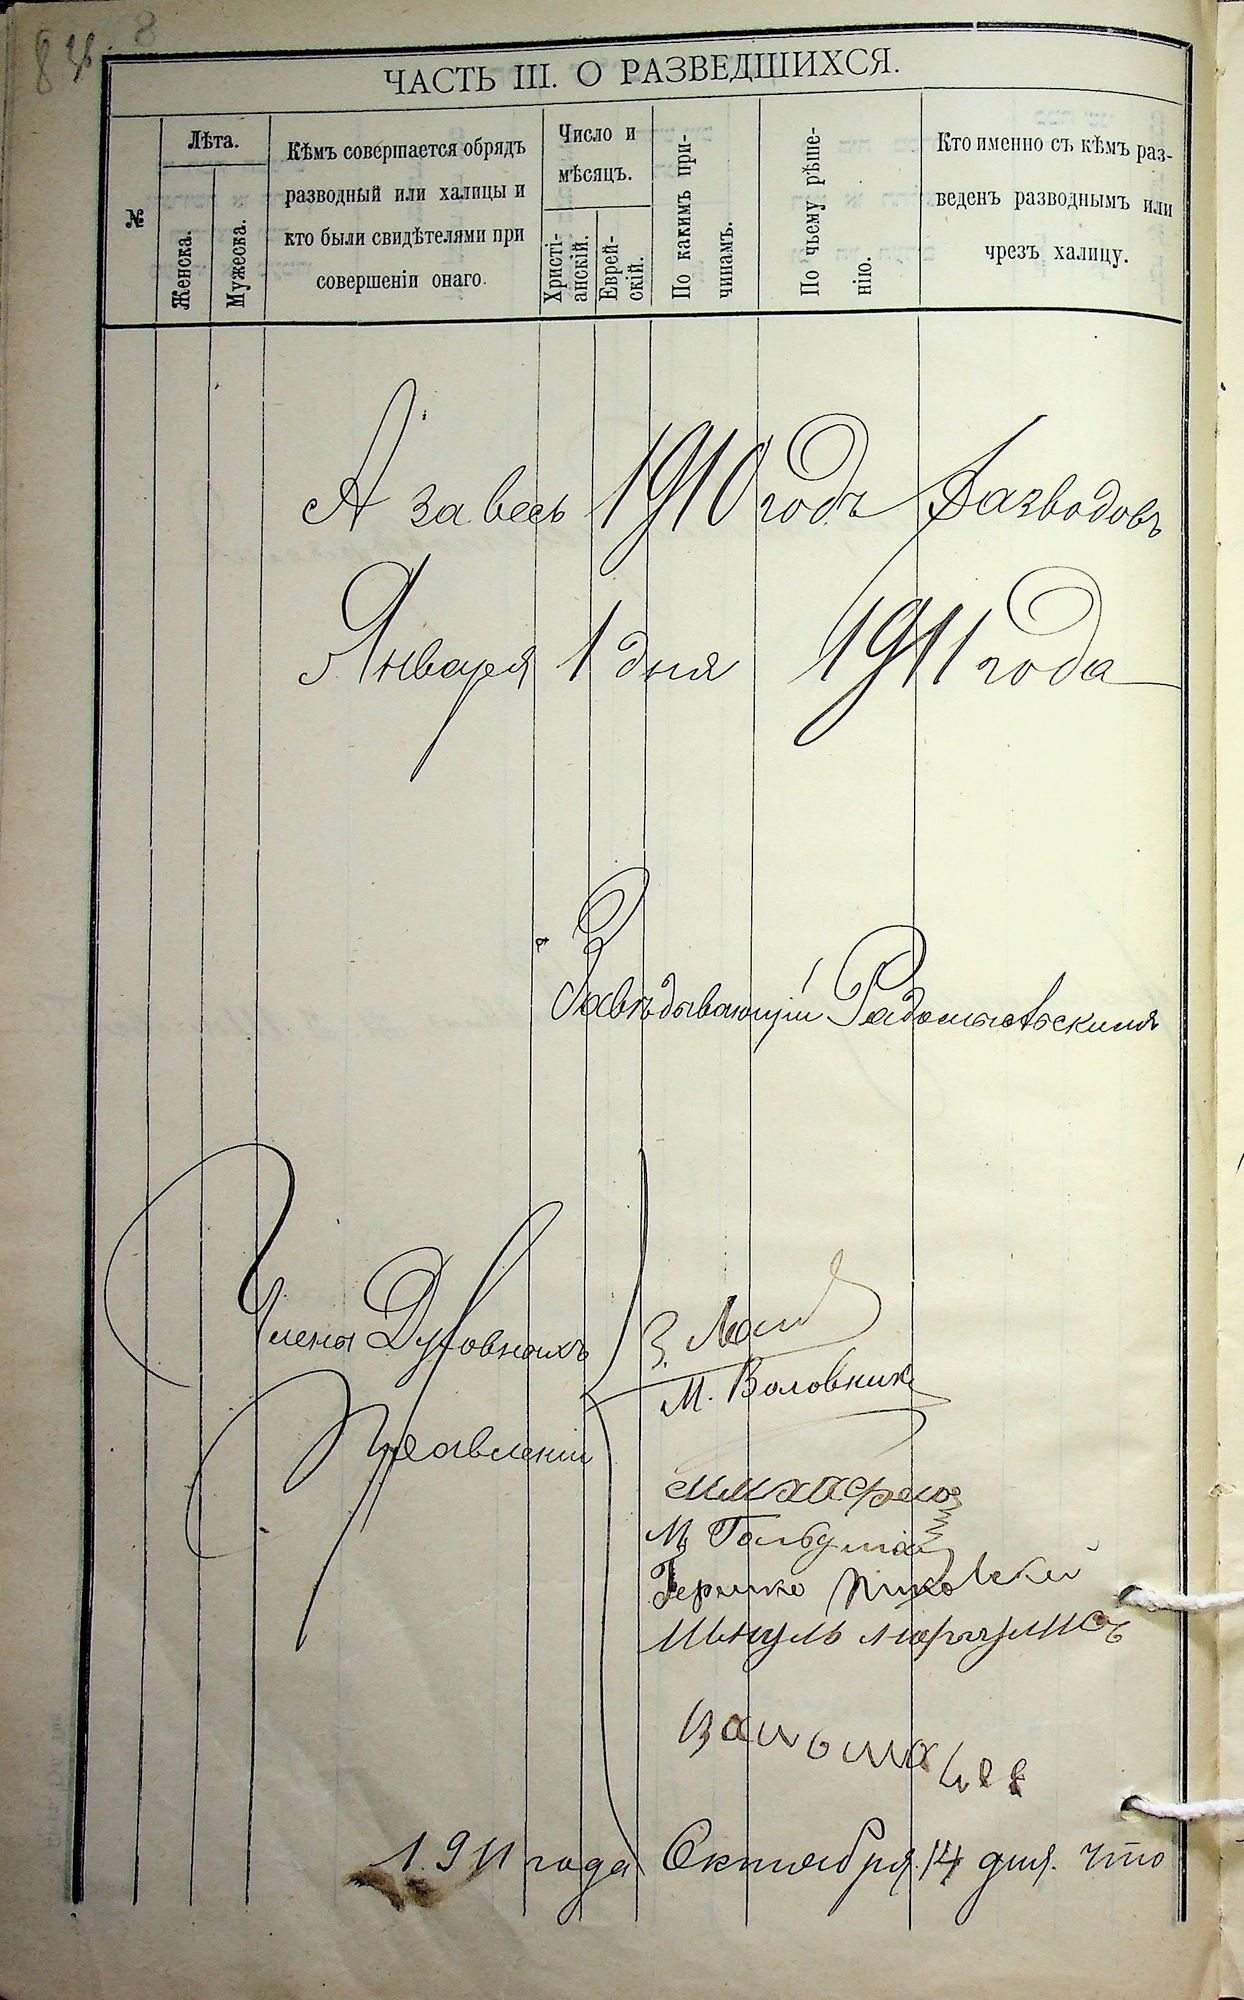 8
ЧАСТЬ III. О РАЗВЕДШИХСЯ.
№
Лѣта.
Женска.
Мужеска.
Кѣмъ совершается обрядъ
разводный или халицы и
кто были свидѣтелями при
совершеніи онаго.
Число и
мѣсяцъ.
Христі-
анскій.
Еврей-
скій.
По какимъ при-
чинамъ.
По чьему рѣше-
нію.
Кто именно съ кѣмъ раз-
веденъ разводнымъ или
чрезъ халицу.
А за весь 1910 годъ Разводовъ
Января 1 дня 1911 года
Завѣдывающій Радомысльскимъ
Члены Духовныхъ
Правленій
З.
М. Воловник
М.
Шмуль Маргулисъ
1911 года Октября 14 дня. что